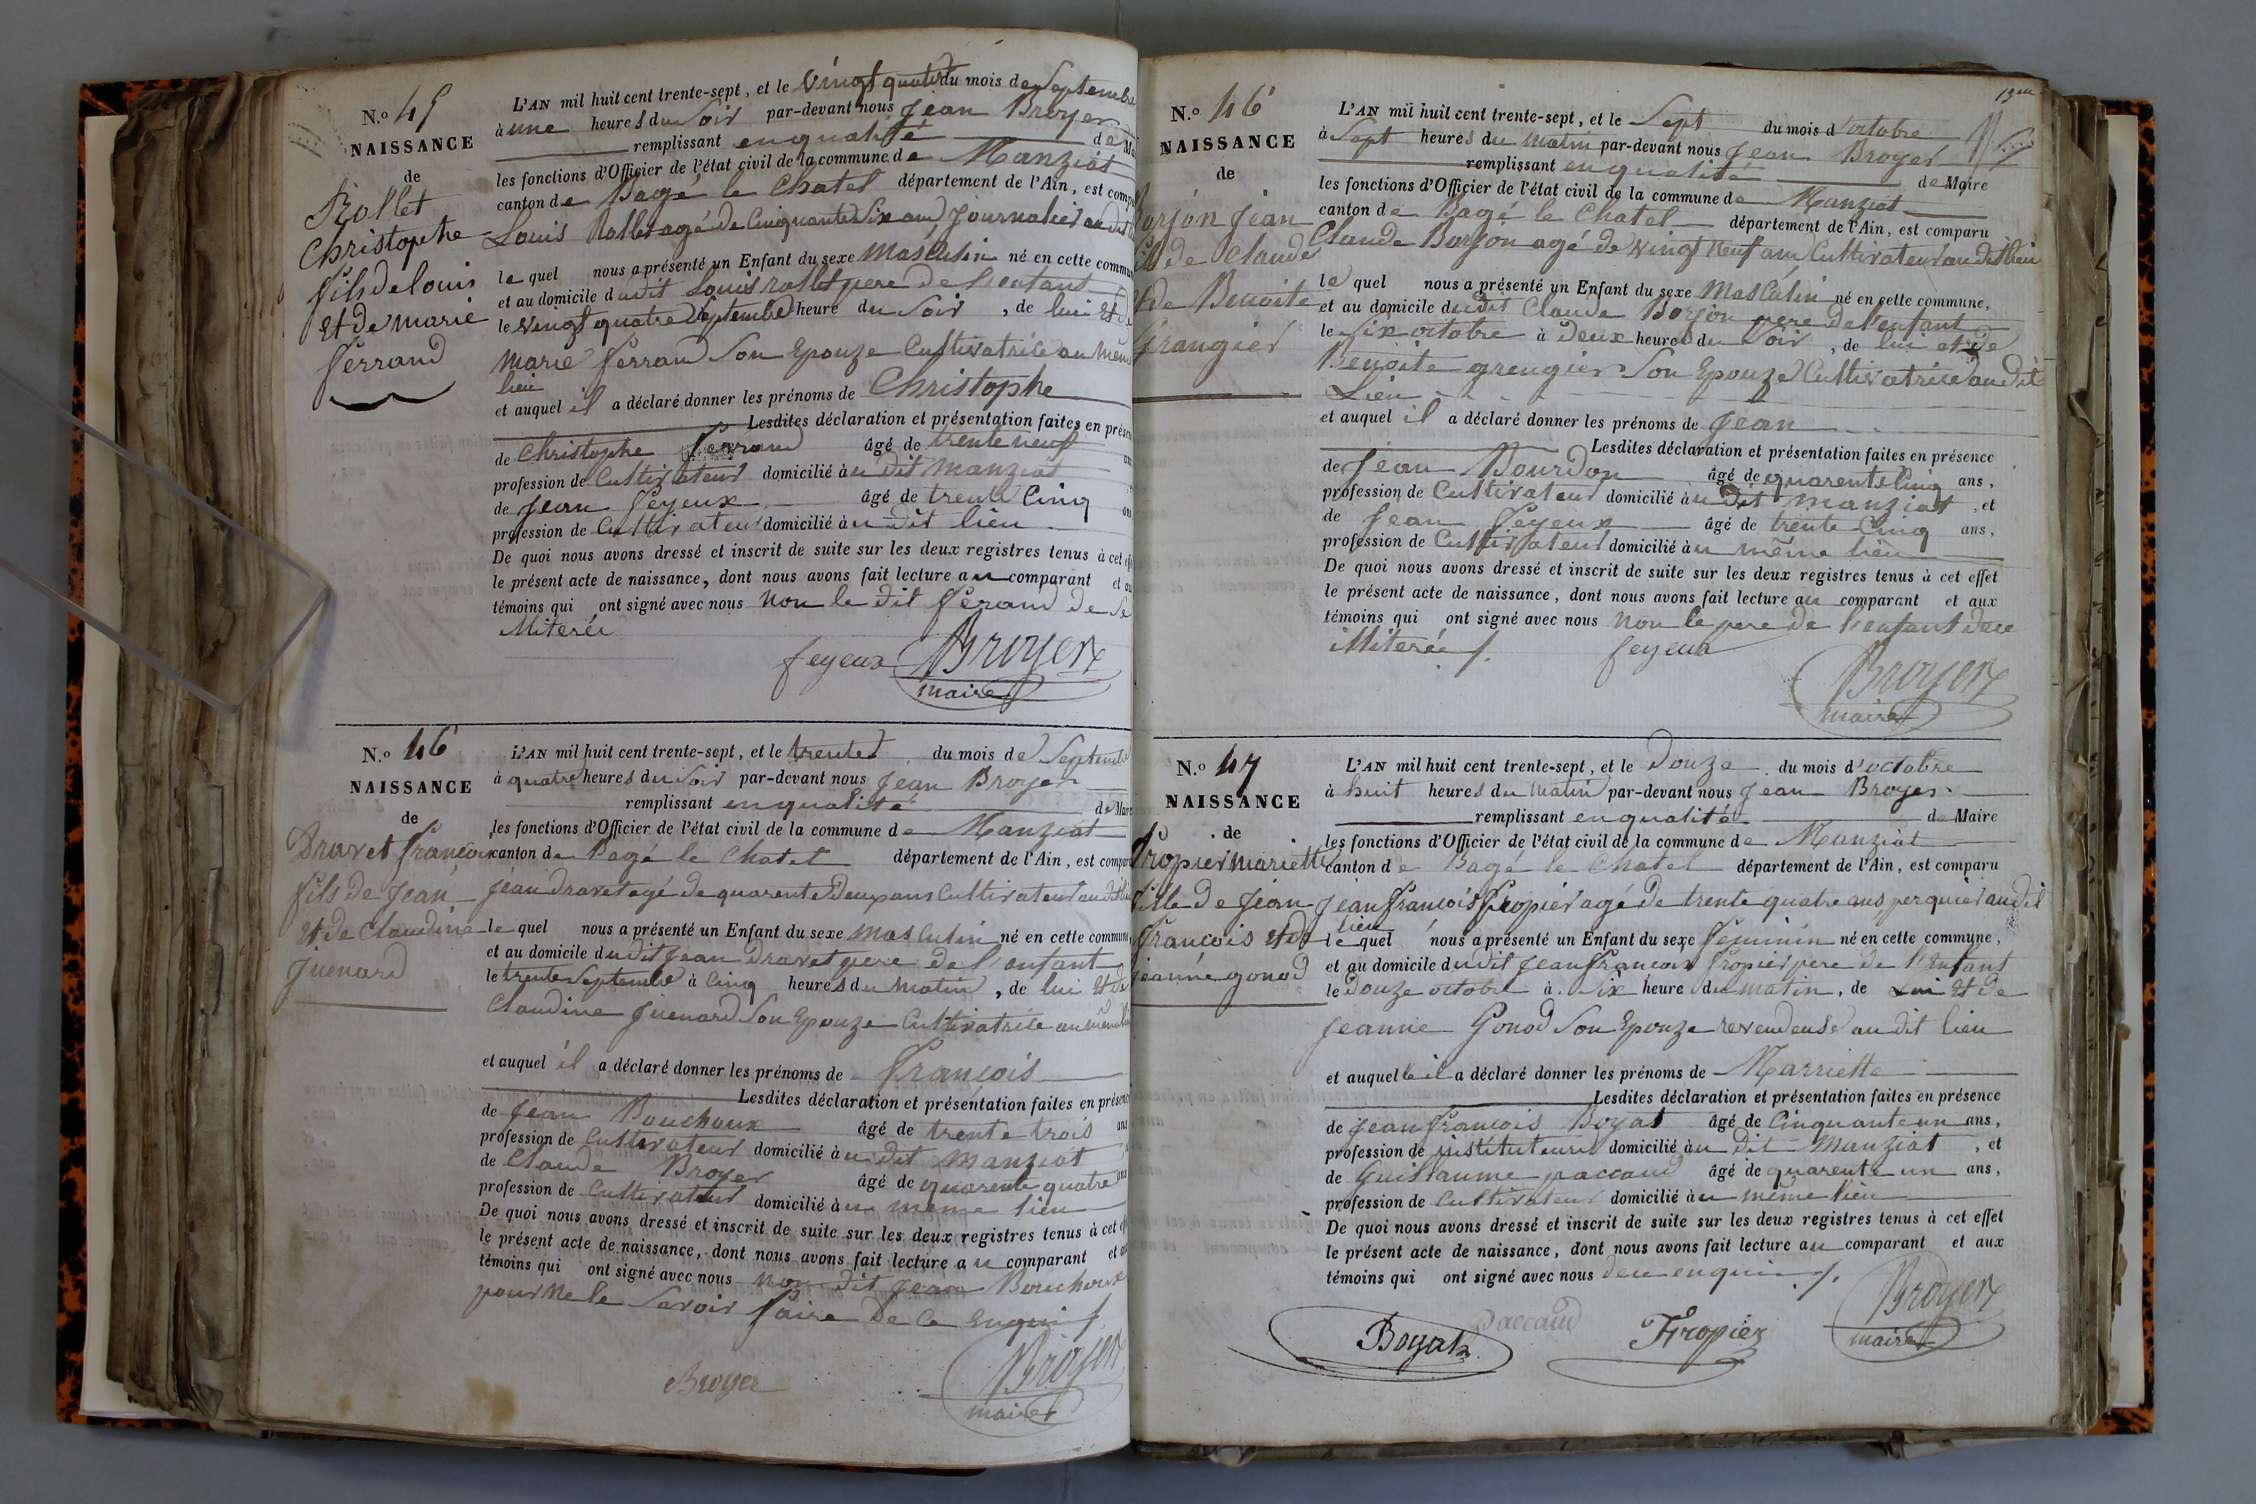 N.º 45
NAISSANCE
de
Rollet
Christophe
fils de louis
et de marie
ferrand
L'AN mil huit cent trente-sept, et le vingt quatre du mois de Septembre
à une heures du Soir par-devant nous Jean Broyer
remplissant en qualité de Ma
les fonctions d'Officier de l'état civil de la commune de Manziat
canton de Bagé le Chatel département de l'Ain, est compa
Louis Rollet agé de Cinquante Six ans Journalier au dit
le quel nous a présenté un Enfant du sexe Masculin né en cette commun
et au domicile dudit Louis rollet pere de l'enfant
le vingt quatre Septembre heure du Soir, de lui et de
Marie ferrand Son Epouze Cultivatrice au Même
lieu
et auquel il a déclaré donner les prénoms de Christophe
Lesdites déclaration et présentation faites en prése
de Christophe ferrand âgé de trente neuf ans
profession de Cultivateur domicilié au dit Manziat
de Jean feyeux âgé de trente Cinq ans
profession de Cultivateur domicilié au dit lieu
De quoi nous avons dressé et inscrit de suite sur les deux registres tenus à cet ef
le présent acte de naissance, dont nous avons fait lecture au comparant et au
témoins qui ont signé avec nous non le dit ferand de Se
Miterée
feyeux Broyer
maire
N.º 46
NAISSANCE
de
Dravet françois
fils de Jean
et de Claudine
Juenard
L'AN mil huit cent trente-sept, et le trente du mois de Septembre
à quatre heures du Soir par-devant nous Jean Broyer
remplissant en qualité de Maire
les fonctions d'Officier de l'état civil de la commune de Manziat
canton de Bagé le Chatel département de l'Ain, est compar
Jean dravet agé de quarente Deux ans Cultivateur au dit lieu
le quel nous a présenté un Enfant du sexe Masculin né en cette commune,
et au domicile dudit Jean dravet pere de l'enfant
le trente Septembre à Cinq heures du Matin, de lui et de
Claudine Juenard Son Epouze Cultivatrice au même lieu
et auquel il a déclaré donner les prénoms de François
Lesdites déclaration et présentation faites en présenc
de Jean Bouchoux âgé de trente trois ans
profession de Cultivateur domicilié au dit Manziat
de Claude Broyer âgé de quarente quatre ans
profession de Cultivateur domicilié au même lieu
De quoi nous avons dressé et inscrit de suite sur les deux registres tenus à cet ef
le présent acte de naissance, dont nous avons fait lecture au comparant et au
témoins qui ont signé avec nous non dit Jean Bouchoux
pour ne le Savoir faire De Ce Enqui
Broyer
Broyer
maire
13me
N.º 46
NAISSANCE
de
Borjon Jean
fils de Claude
et de Benoite
Grangier
L'AN mil huit cent trente-sept, et le Sept du mois d'octobre
à Sept heures du Matin par-devant nous Jean Broyer
remplissant en qualité de Maire
les fonctions d'Officier de l'état civil de la commune de Manziat
canton de Bagé le Chatel département de l'Ain, est comparu
Claude Borjon agé de vingt Neuf ans Cultivateur au dit lieu
le quel nous a présenté un Enfant du sexe Masculin né en cette commune,
et au domicile dudit Claude Borjon pere de l'enfant
le Six octobre à Deux heures du Soir, de lui et de
Benoite grengier Son Epouze Cultivatrice au dit
Lieu
et auquel il a déclaré donner les prénoms de Jean
Lesdites déclaration et présentation faites en présence
de Jean Bourdon âgé de quarente Cinq ans,
profession de Cultivateur domicilié au dit Manziat, et
de Jean feyeux âgé de trente Cinq ans,
profession de Cultivateur domicilié au même lieu
De quoi nous avons dressé et inscrit de suite sur les deux registres tenus à cet effet
le présent acte de naissance, dont nous avons fait lecture au comparant et aux
témoins qui ont signé avec nous non le pere de l'enfant de ce
Miterée feyeux
Broyer
maire
N.º 47
NAISSANCE
de
Fropier mariette
fille de Jean
françois et de
jeanne gonod
L'AN mil huit cent trente-sept, et le Douze du mois d'octobre
à huit heures du Matin par-devant nous Jean Broyer
remplissant en qualité de Maire
les fonctions d'Officier de l'état civil de la commune de Manziat
canton de Bagé le Chatel département de l'Ain, est comparu
Jean françois fropier agé de trente quatre ans perquier au dit
lieu
le quel nous a présenté un Enfant du sexe feminin né en cette commune,
et au domicile dudit Jean françois fropier pere de l'enfant
le Douze octobre à Six heure du matin, de Lui et de
Jeanne Gonod Son Epouze revendeuse au dit lieu
et auquelle il a déclaré donner les prénoms de Marriette
Lesdites déclaration et présentation faites en présence
de Jean françois Boyat âgé de Cinquante un ans,
profession de instituteur domicilié au dit Manziat, et
de Guillaume paccaud âgé de quarente un ans,
profession de Cultivateur domicilié au même lieu
De quoi nous avons dressé et inscrit de suite sur les deux registres tenus à cet effet
le présent acte de naissance, dont nous avons fait lecture au comparant et aux
témoins qui ont signé avec nous de ce enqui
Boyat Paccaud Fropier Broyer
maire